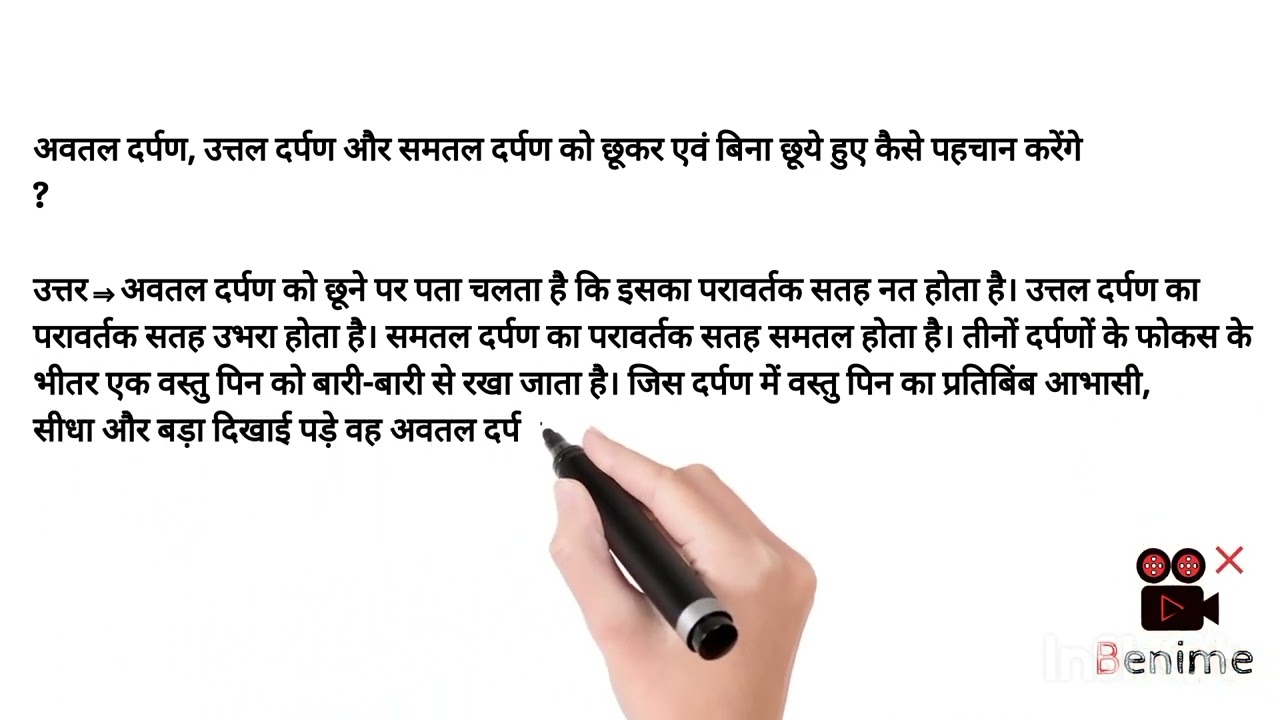 अवतल दर्पण, उत्तल दर्पण और समतल दर्पण को छूकर एवं बिना छूये हुए कैसे पहचान करेंगे
?
उत्तर ⇒ अवतल दर्पण को छूने पर पता चलता है कि इसका परावर्तक सतह नत होता है। उत्तल दर्पण का
परावर्तक सतह उभरा होता है। समतल दर्पण का परावर्तक सतह समतल होता है। तीनों दर्पणों के फोकस के
भीतर एक वस्तु पिन को बारी-बारी से रखा जाता है। जिस दर्पण में वस्तु पिन का प्रतिबिंब आभासी,
सीधा और बड़ा दिखाई पड़े वह अवतल दर्प
Benime